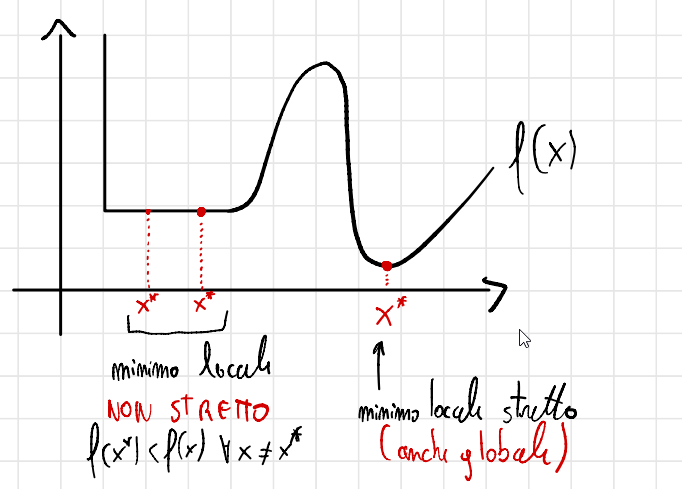 f(x)
x* x*
x*
minimo locale
NON STRETTO
f(x*) < f(x) ∀ x ≠ x*
minimo locale stretto
(anche globale)